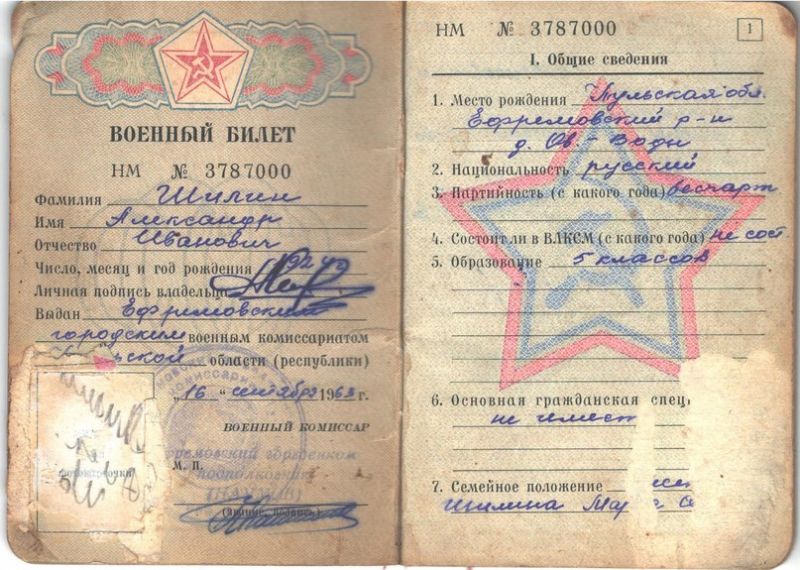 ВОЕННЫЙ БИЛЕТ
НМ № 3787000
Фамилия Шилин
Имя Александр
Отчество Иванович
Число, месяц и год рождения
Личная подпись владельца
Выдан Ефремовским
городским военным комиссариатом
области (республики)
"16" сентября 1963 г.
ВОЕННЫЙ КОМИССАР
Ефремовский горвоенком
М. П. подполковник
(звание, подпись)
НМ № 3787000 1
I. Общие сведения
1. Место рождения Тульская обл.
Ефремовский р-н
д. Ов.-Воды
2. Национальность русский
3. Партийность (с какого года) беспарт
4. Состоит ли в ВЛКСМ (с какого года) не сост.
5. Образование 5 классов
6. Основная гражданская
не имеет
7. Семейное положение
Шилина